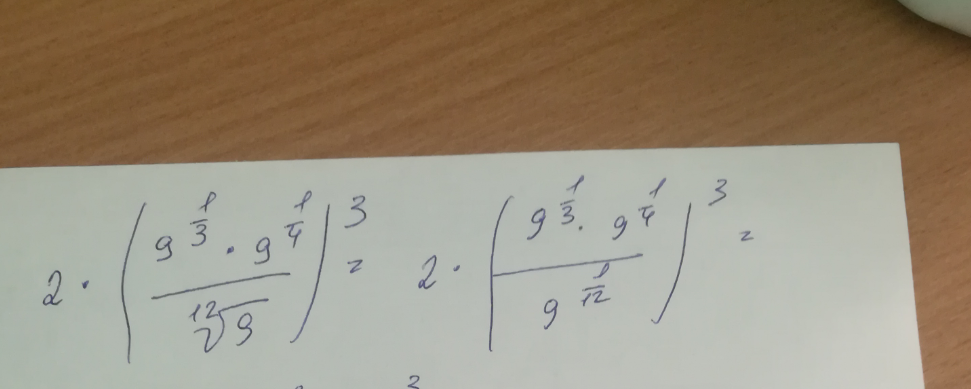 2 · (9^{1/3} · 9^{1/4} / \sqrt[12]{9})^3 = 2 · (9^{1/3} · 9^{1/4} / 9^{1/12})^3 =